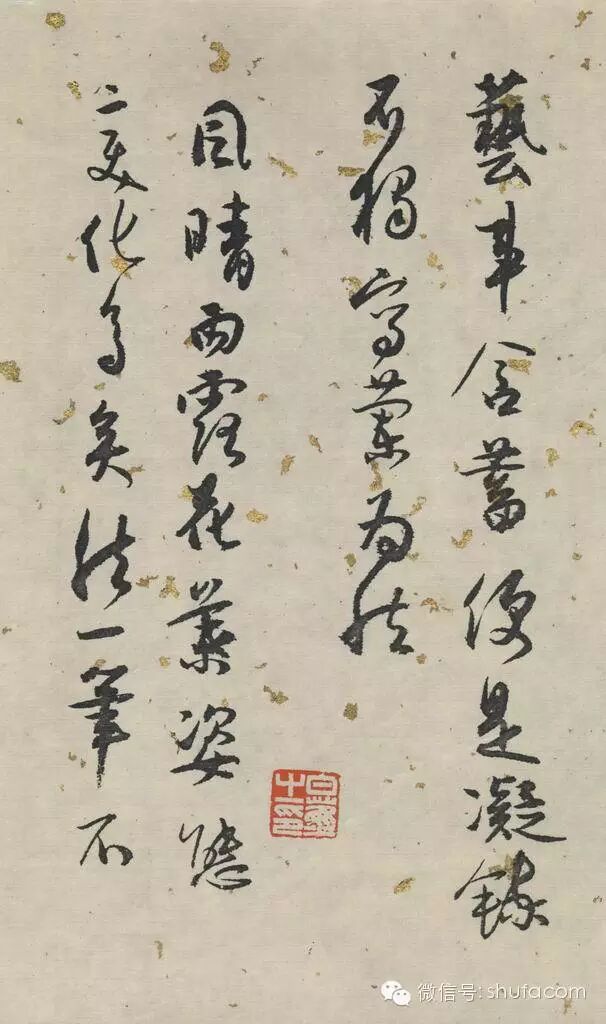 藝事含蓄便是凝鍊
不獨寫蘭為然
風晴雨露花葉姿態
變化多矣然一筆不
微信号: shufacom